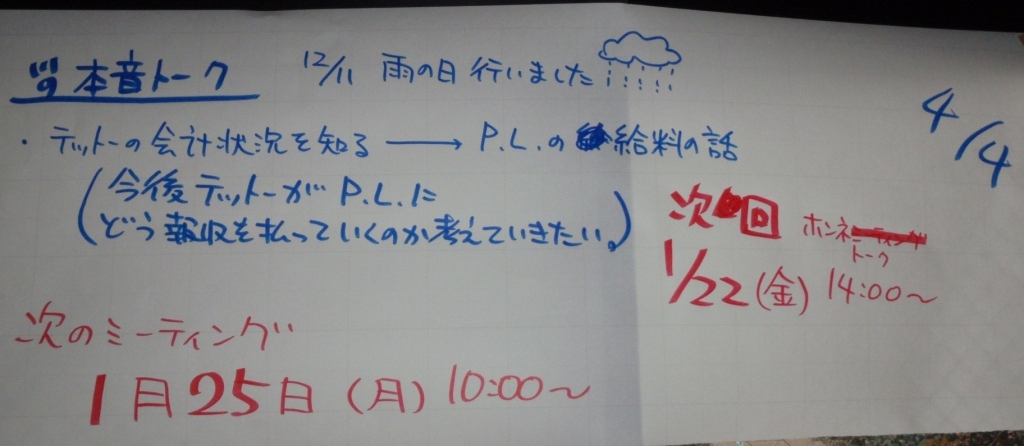 本音トーク 12/11 雨の日 行いました
4/4
・テットーの会計状況を知る → P.L.の給料の話
(今後テットーがP.L.に
どう報収を払っていくのか考えていきたい。)
次回 ホンネ
トーク
1/22(金) 14:00〜
次のミーティング
1月25日(月) 10:00〜